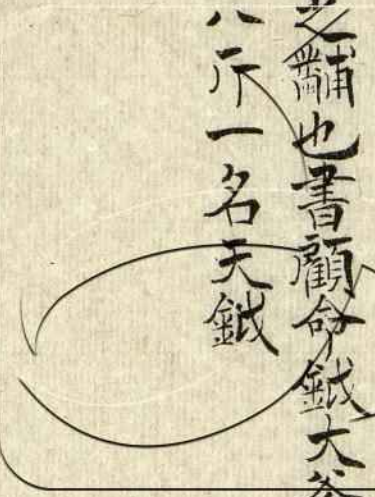 之黼也書顧命鉞大斧
八斤一名天鉞